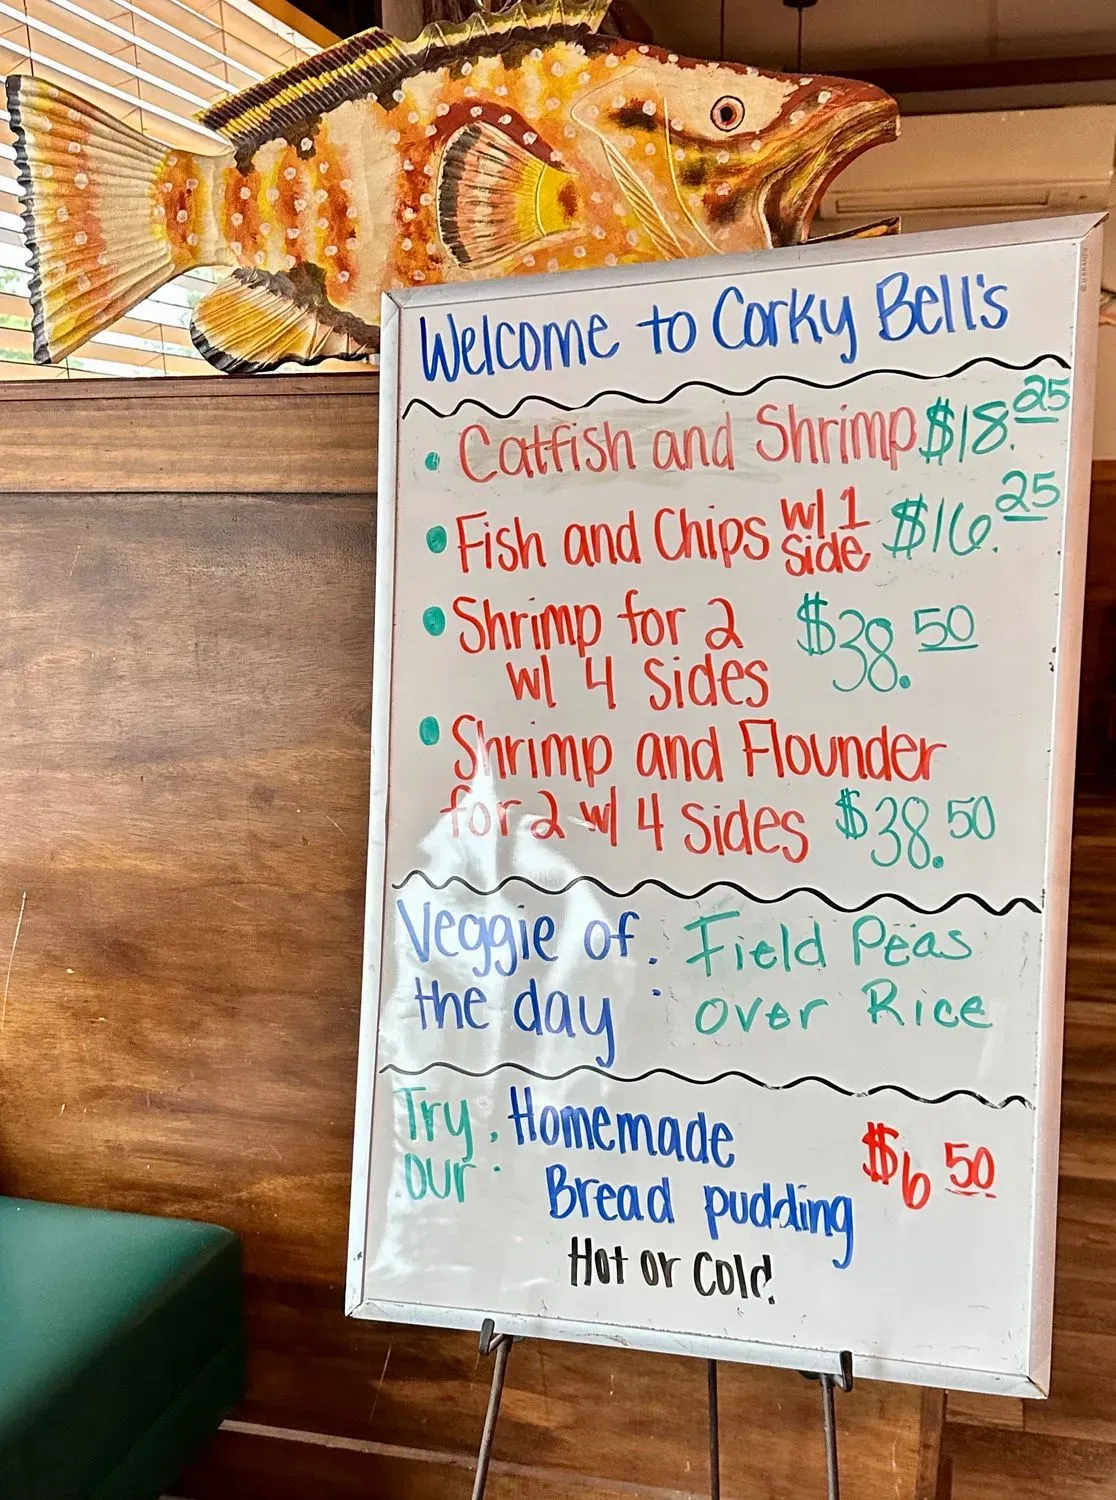 Welcome to Corky Bell's
• Catfish and Shrimp $18.25
• Fish and Chips w/ 1 side $16.25
• Shrimp for 2 $38.50
w/ 4 sides
• Shrimp and Flounder
for 2 w/ 4 sides $38.50
Veggie of : Field Peas
the day over Rice
Try : Homemade $6 50
our Bread pudding
Hot or Cold!